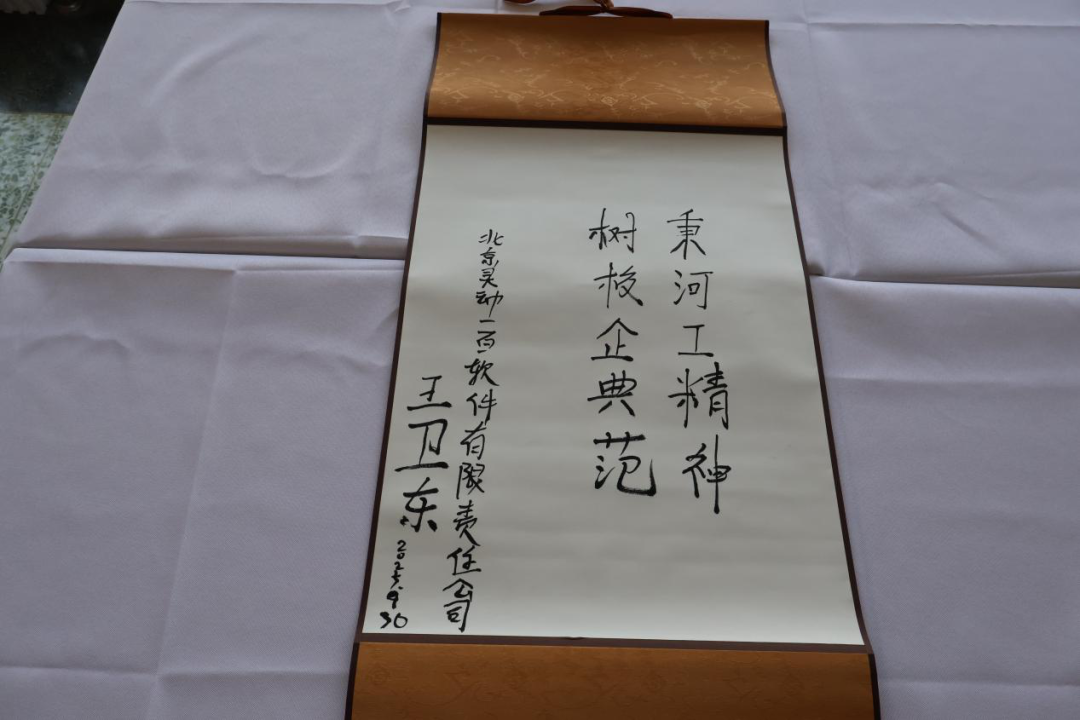 秉河工精神
树校企典范
北京灵动一百软件有限责任公司
王卫东
2025.9.30